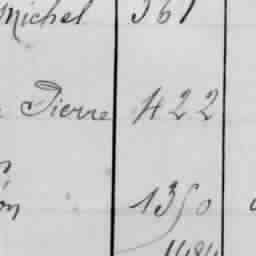 Michel 361
Pierre 422
on 1350
1484